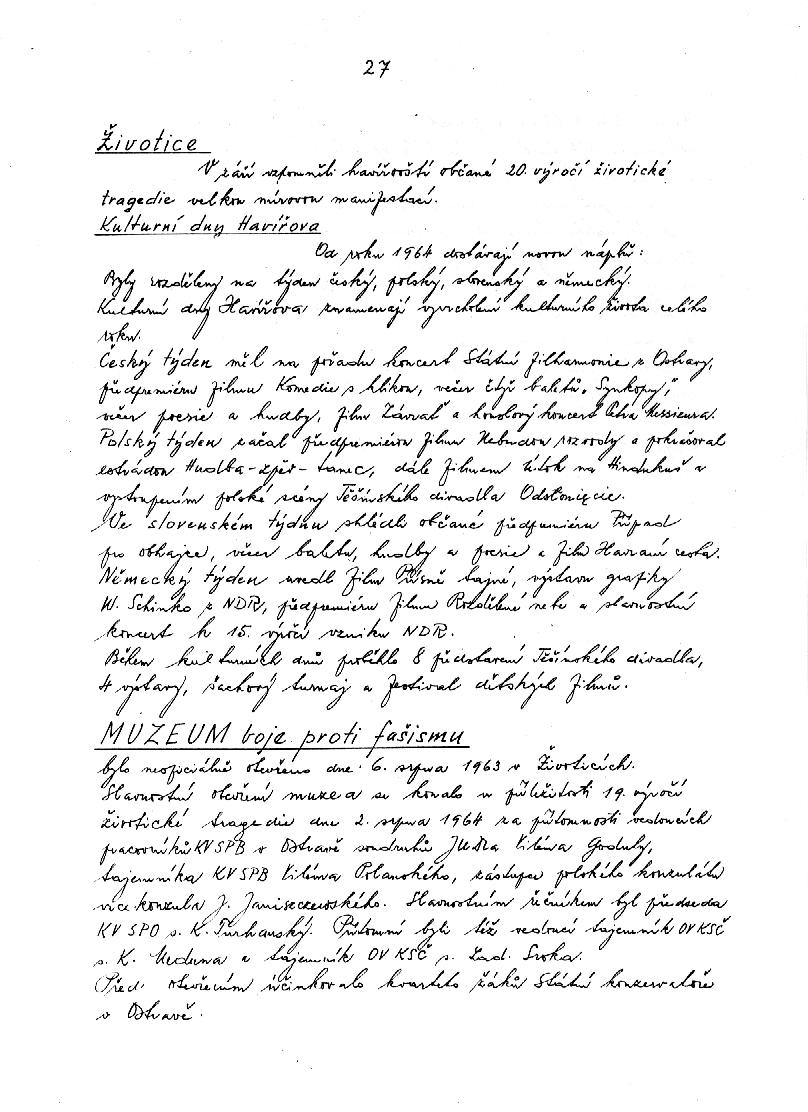 27
Životice
V září vzpomněli havířovští občané 20. výročí životické
tragedie velkou mírovou manifestací.
Kulturní dny Havířova
Od roku 1964 dostávají novou náplň:
Byly rozděleny na týden český, polský, slovenský a německý.
Kulturní dny Havířova znamenají vyvrcholení kulturního života celého
roku.
Český týden měl na pořadu koncert Státní filharmonie z Ostravy,
předpremiéru filmu Komedie s klikou, večer čtyř baletů „Synkopy",
večer poesie a hudby, film Závrať a houslový koncert Petra Messieura.
Polský týden začal předpremiérou filmu Nebudou rozvody a pokračoval
estrádou Hudba-zpěv-tanec, dále filmem Útok na Hindukuš a
vystoupením polské scény Těšínského divadla Odsłonięcie.
Ve slovenském týdnu shlédli občané předpremiéru Případ
pro obhajce, večer baletu, hudby a poesie a film Havraní cesta.
Německý týden uvedl film Přísně tajné, výstavu grafiky
W. Schinko z NDR, předpremiéru filmu Rozdělené nebe a slavnostní
koncert k 15. výročí vzniku NDR.
Během kulturních dnů proběhlo 8 představení Těšínského divadla,
4 výstavy, šachový turnaj a festival dětských filmů.
MUZEUM boje proti fašismu
bylo neoficiálně otevřeno dne 6. srpna 1963 v Životicích.
Slavnostní otevření muzea se konalo u příležitosti 19. výročí
životické tragedie dne 2. srpna 1964 za přítomnosti vedoucích
pracovníků KV SPB v Ostravě soudruhů JUDra Viléma Goduly,
tajemníka KV SPB Viléma Polanského, zástupce polského konzulátu
vicekonzula J. Janiszczewského. Slavnostním řečníkem byl předseda
KV SPO s. K. Turhanský. Přítomni byli též vedoucí tajemník OV KSČ
s. K. Meduna a tajemník OV KSČ s. Lad. Sroka.
Před otevřením účinkovalo kvarteto žáků Státní konzervatoře
v Ostravě.